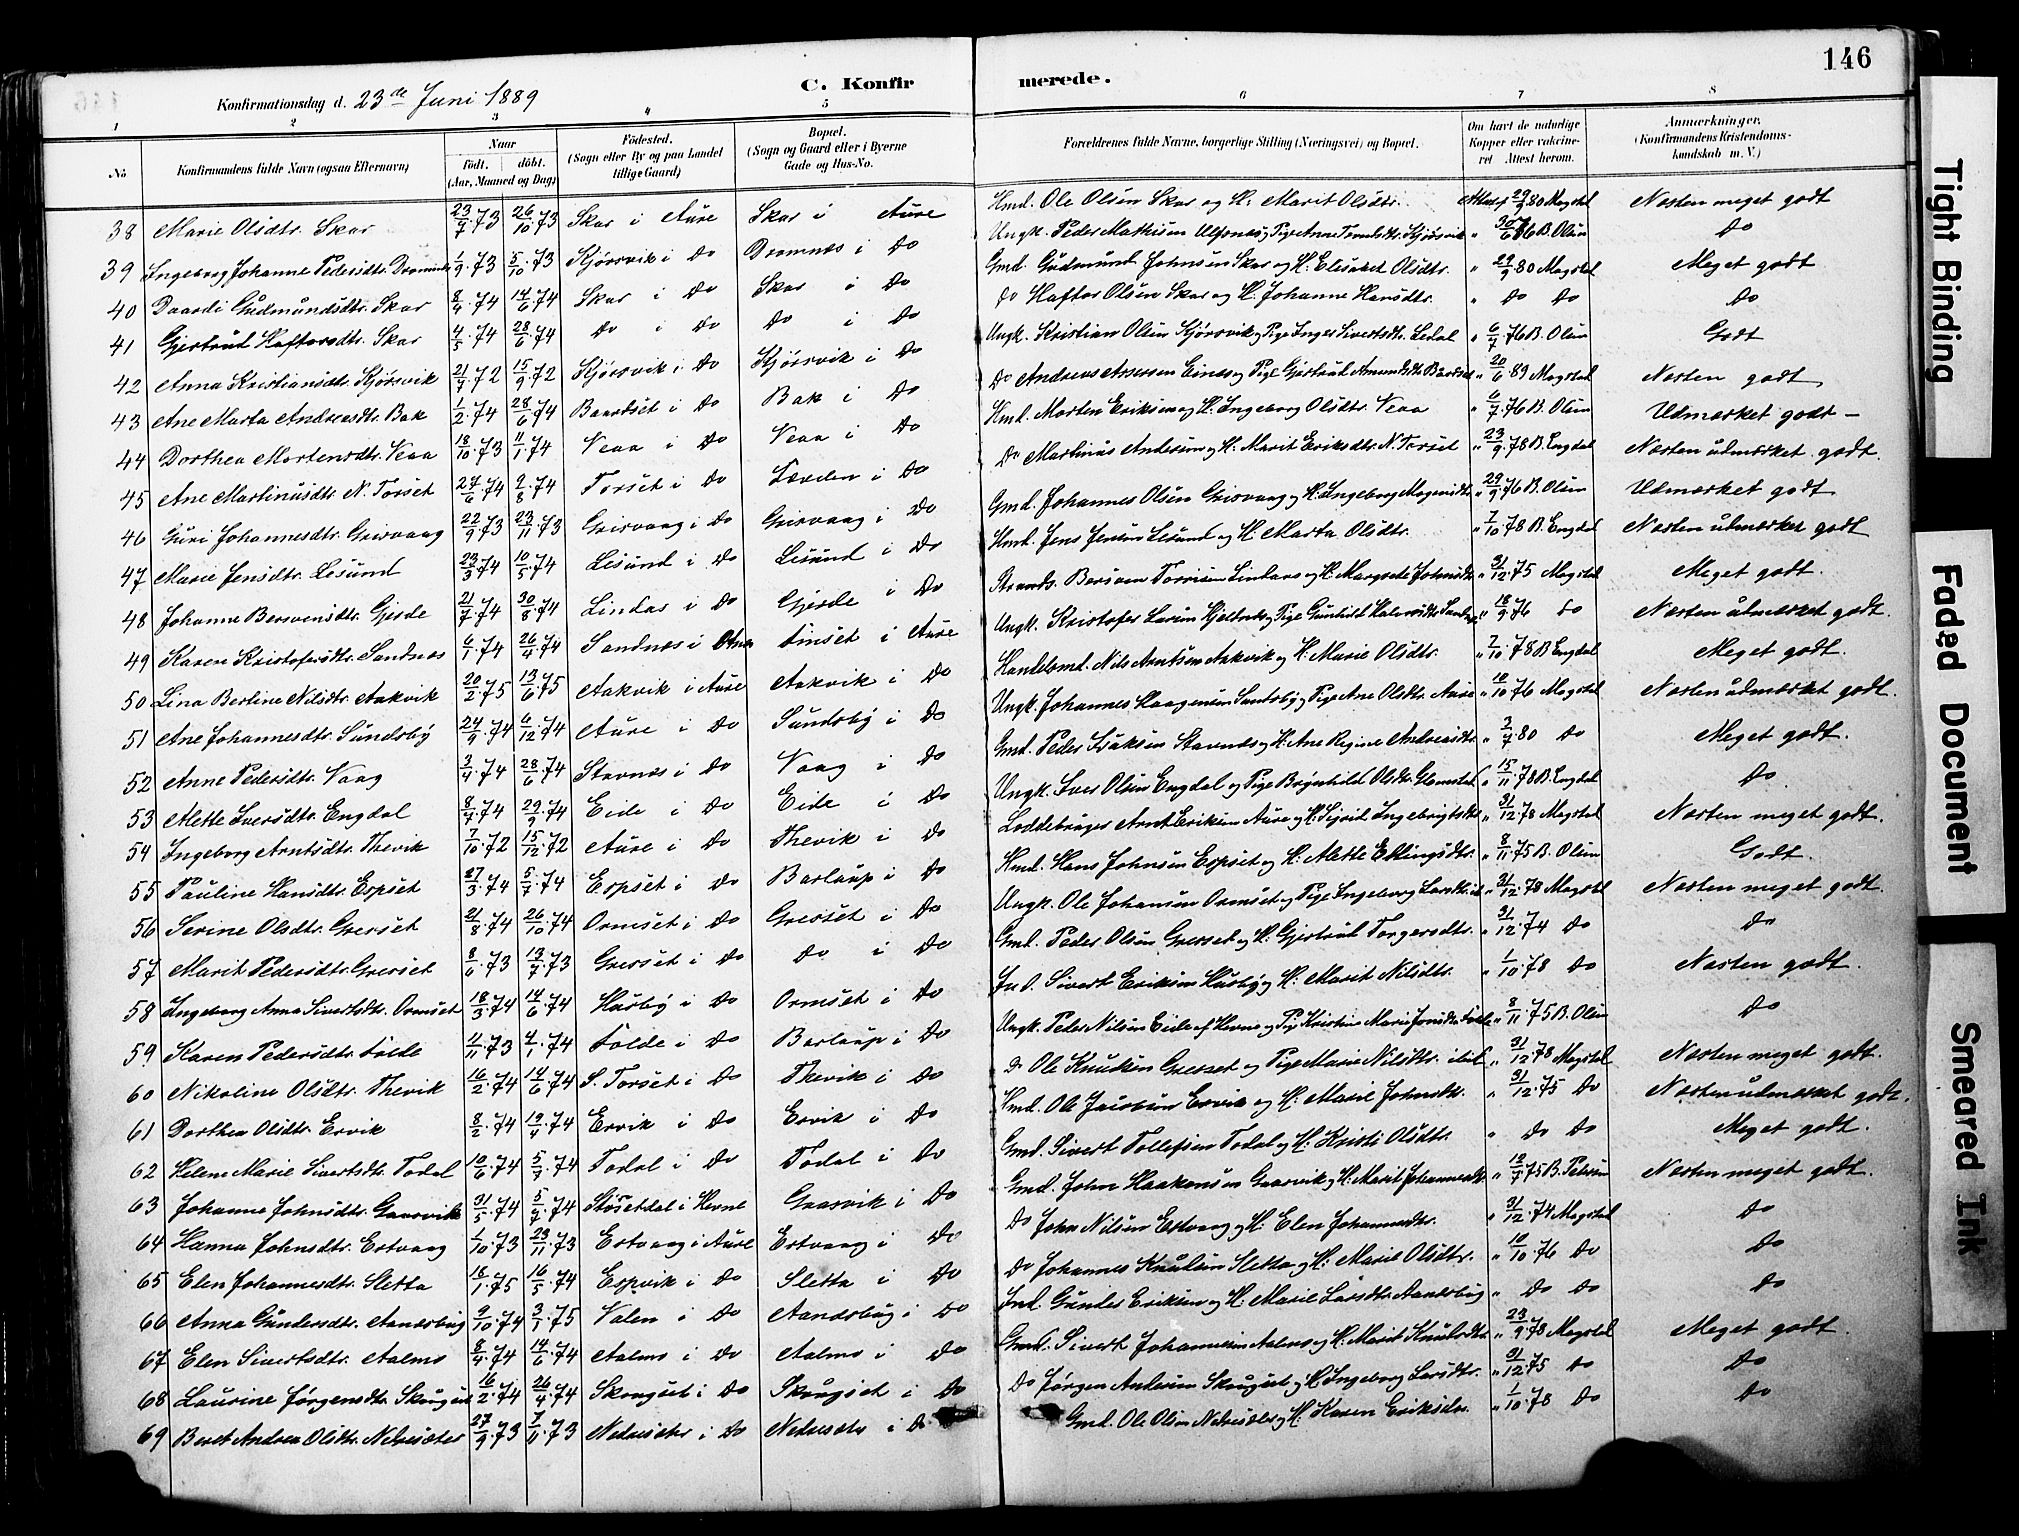 146
Konfirmationsdag d. 23de Juni 1889
C. Konfirmerede.
1 2 3 4 5 6 7 8
No
Konfirmandens fulde Navn (ogsaa Efternavn)
Naar födt. döbt. (Aar, Maaned og Dag)
Födested. (Sogn eller By og paa Landet tillige Gaard)
Bopæl. (Sogn og Gaard eller i Byerne Gade og Hus-No.
Forældrenes fulde Navne, borgerlige Stilling (Næringsvei) og Bopæl.
Om havt de naturlige Kopper eller vakcineret Attest herom.
Anmærkninger. (Konfirmandens Kristendomskundskab m. V.)
38 Marie Olsdtr. Skar 23/7.73 26/10.73 Skar i Aure Skar i Aure Hmd. Ole Olsen Skar og H. Marit Olsdtr. 29/9 80 Magstal Næsten meget godt
39 Ingeborg Johanne Pedersdtr. 1/9.73 5/10.73 Kjørsvik i Do Dromnes i Do Ungk. Peder Mathisen B. Olsen Do
40 Daardi Gudmundsdtr. Skar 8/4.74 14/6.74 Skar i Do Skar i Do Gmd. Gudmund Johnsen Skar og H. Elisabet Olsdtr. " 29/9 80 Magstal Meget godt
41 Gjertrud Haftorsdtr. Skar 4/5.74 28/6.74 Do i Do Do i Do Do Haftor Olsen Skar og H. Johanne Hansdtr. " Do Do Do
42 Anna Kristiansdtr. Kjørsvik 21/7.72 15/9.72 Kjørsvik i Do Kjørsvik i Do Ungk. Kristian Olsen Kjørsvik og Pige Inger Sivertsdtr. Ledal " 6/7.76 B. Olsen Godt
43 Ane Marta Andreasdtr. Bak 1/2.74 28/6.74 Baardset i Do Bak i Do Do Andreas Assersen Eines og Pige Gjertrud Amundsdtr. Baardset " 20/6 83 Magstal Næsten godt
44 Dorthea Mortensdtr. Veaa 18/10.73 11/1.74 Veaa i Do Veaa i Do Hmd. Morten Eriksen og H. Ingeborg Olsdtr. Veaa " 6/7.76 B. Olsen Udmærket godt -
45 Ane Martinusdtr. N. Torset 27/6.74 2/8.74 Torset i Do i Do Do Martinus Andersen og H. Marit Eriksdtr. N. Torset " 23/9.78 B. Engdal Næsten udmærket godt.
46 Guri Johannesdtr. Grisvaag 22/9.73 23/11.73 Grisvaag i Do Grisvaag i Do Gmd. Johannes Olsen Grisvaag og H. Ingeborg Mogensdtr " 29/9.76 B. Olsen Udmærket godt
47 Marie Jensdtr. Lesund 22/3.74 10/5.74 Lesund i Do Lesund i Do Hmd. Jens Jensen Lesund og H. Marta Olsdtr. " 7/10.78 B. Engdal Næsten udmærket godt
48 Johanne Bersvensdtr. Gjerde 21/7.74 30/8.74 Lindaas i Do Gjerde i Do Strands. Bersven H. Margrete Johnsdtr. " 31/12.75 Magstal Meget godt.
49 Karen Kristofersdtr. Sandnes 6/1.74 26/4.74 Sandnes i i Aure Ungk. Kristofer Larsen " 18/9.76 Do Næsten udmærket godt.
50 Lina Bertine Nilsdtr. Aakvik 20/2.75 13/6.75 Aakvik i Aure Aakvik i Do Handelsmd. Nils Arntsen Aakvik og H. Marie Olsdtr. " 7/10.78 B Engdal Meget godt.
51 Ane Johannesdtr. Sundsby 24/9.74 6/12.74 Aure i Do Sundsby i Do Ungk. Johannes Haagensen Sundsby og Pige Ane Olsdtr. Aure " 10/10 76 Magstal Næsten udmærket godt.
52 Anne Pedersdtr. Vaag 3/4.74 28/6.74 Stavnæs i Do Vaag i Do Gmd. Peder Isaksen Stavnæs og H. Ane Regine Andreasdtr " 3/7.80 Do Meget godt.
53 Mette Iversdtr. Engdal 8/7.74 29/9.74 Eide i Do Eide i Do Ungk. Iver Olsen Engdal og Pige Brynhild Olsdtr. Glamstad " 15/11.78 B. Engdal Do
54 Ingeborg Arntsdtr. Thevik 7/10.72 15/12.72 Aure i Do Thevik i Do Loddebruger Arnt Eriksen Aure og H. Sigrid Ingebrigtsdtr " 31/12.78 Magstal Næsten meget godt.
55 Pauline Hansdtr. Espset 27/3.74 5/7.74 Espset i Do Barlaup i Do Hmd. Hans Johnsen Espset og H. Mette Ellingsdtr. " 8/11.75 B. Olsen Godt.
56 Serine Olsdtr. Gresset 21/8.74 26/10.74 Ormset i Do Gresset i Do Ungk. Ole Johansen Ormset og Pige Ingeborg " 31/12.78 Magstal Næsten meget godt.
57 Marit Pedersdtr. Gresset 8/6.73 13/7.73 Gresset i Do Do i Do Gmd. Peder Olsen Gresset og H. Gjertrud Torgersdtr. " 31/12.74 Do Do
58 Ingeborg Anna Sivertsdtr. Ormset 18/3.74 14/6.74 Husby i Do Ormset i Do Ind. Sivert Eriksen Husby og H. Marit Nilsdtr. " 1/10.78 Do Næsten godt.
59 Karen Pedersdtr. Folde 11/11.73 4/1.74 Folde i Do Barlaup i Do Ungk. Peder Nilsen Eide af Hevne og Pige Kristine Marie " 8/11.75 B. Olsen Do
60 Nikoline Olsdtr. Thevik 16/2.74 14/6.74 S. Torset i Do Thevik i Do Do Ole Knudsen Gresset og Pige Marie Nilsdtr. ibid " 31/12.78 Magstal Næsten meget godt.
61 Dorthea Olsdtr. Ervik 8/2.74 19/4.74 Ervik i Do Ervik i Do Hmd. Ole Jacobsen Ervik og H. Marie Johnsdtr. " 31/12.75 Do Næsten udmærket godt.
62 Helene Marie Sivertsdtr. Todal 10/6.74 5/7.74 Todal i Do Todal i Do Gmd. Sivert Tollefsen Todal og H. Kristi Olsdtr. " Do Do Meget godt.
63 Johanne Johnsdtr. Gaasvik 31/5.74 5/7.74 Støsetdal i Hevne Graasvik i Do Gmd. John Haakonsen og H. Marit Johannesdtr. B. Petersen Næsten meget godt.
64 Hanna Johnsdtr. Estvaag 1/10.73 23/11.73 Estvaag i Aure Estvaag i Do Do John Nilsen Estvaag og H. Elen Johannesdtr. " 31/12.74 Magstal Do
65 Elen Johannesdtr. Sletta 18/1.75 16/5.74 Espvik i Do Sletta i Do Do Johannes Knudsen Sletta og H. Marie Olsdtr. " 10/10.76 Do Do
66 Anna Gundersdtr. Aandsbug 9/10.74 3/1.75 Valen i Do Aandsbug i Do Ind. Gunder Eriksen og H. Marie Larsdtr. Aandsbug " Do Do Do
67 Elen Sivertsdtr. Aalmo 8/4.74 14/6.74 Aalmo i Do Aalmo i Do Gmd. Sivert Johannesen Aalmo og H. Marit Knudsdtr " 23/9.78 Magstal Meget godt.
68 Laurine Jørgensdtr. Skrugset 16/2.74 26/4.74 Skrugset i Do Skrugset i Do Do Jørgen Andersen Skrugset og H. Ingeborg Larsdtr. " 31/12.75 Do Do
69 Beret Andrea Olsdtr. Nelvesæter 27/9.73 7/11.73 Nelvesæter i Do Nelvesæter i Do Gmd. Ole Olsen Nelvesæter og H. Karen Eriksdtr. " 1/10.78 Do Do
Tight Binding
Faded Document
Smeared Ink